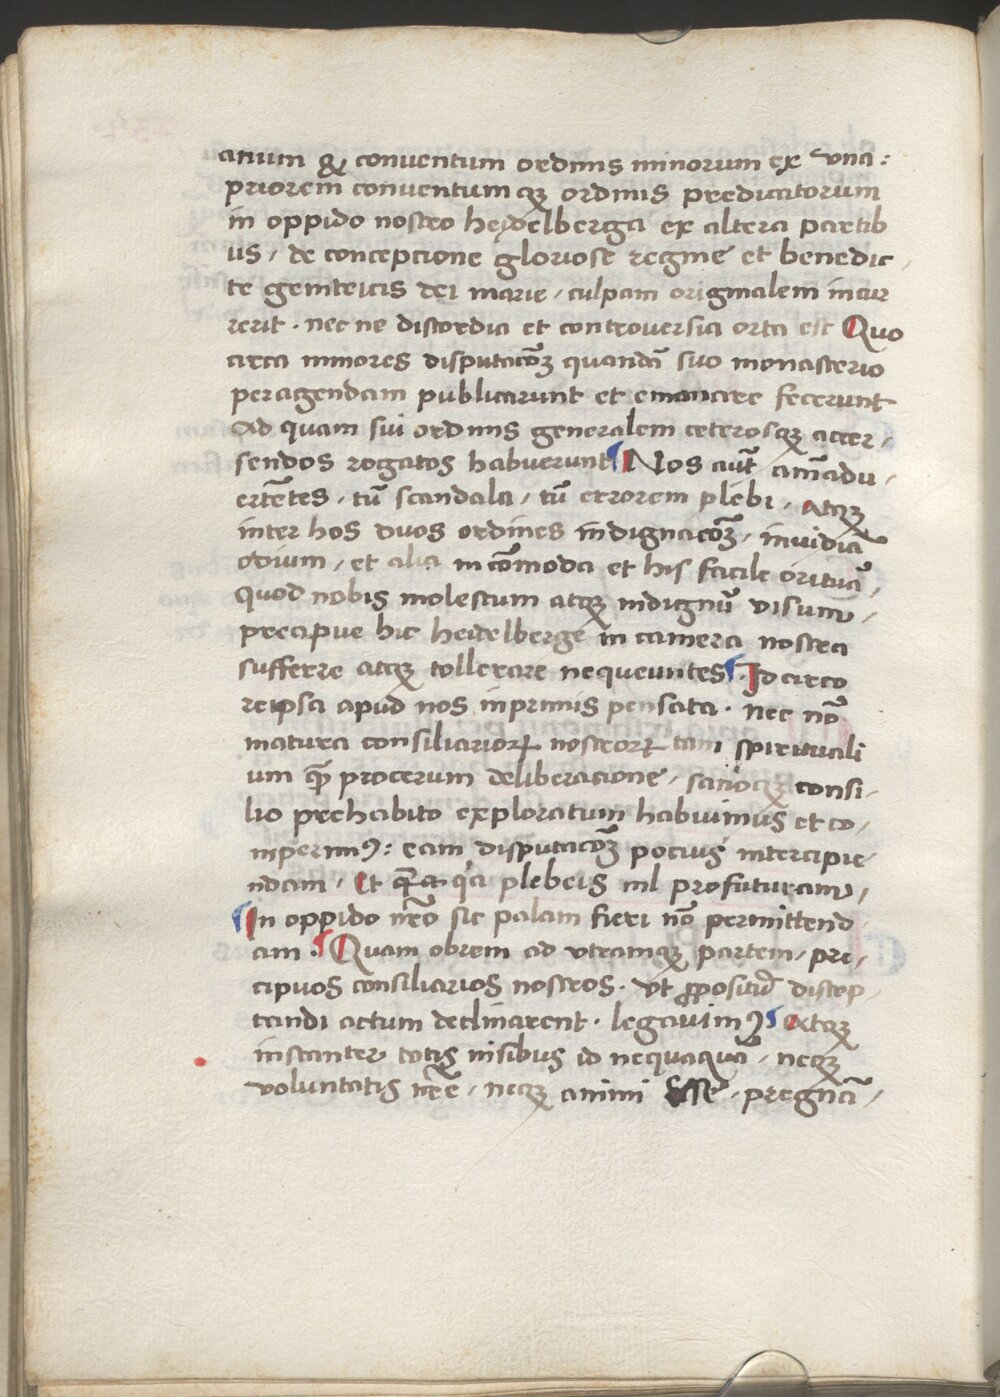 anum q̃ conventum ordinis minorum ex vna :
priorem conventumqꝫ ordinis predicatorum
in oppido nostro heydelberga ex altera partib
us / de concepcione gloriose regine et benedic /
te genitricis dei marie / culpam originalem incur
rerit . nec ne discordia et controversia orta est Quo
circa minores disputacōꝫ quandā suo monasterio
peragendam publicarunt et emanare fecerunt
Ad quam sui ordinis generalem ceterosqꝫ accer /
sendos rogatos habuerunt ¶ Nos aūt aīmadu /
ertētes . tū scandala / tū errorem plebi . Atqꝫ
inter hos duos ordines indignacōꝫ / invidiā
odium / et alia incōmoda et his facile oritura /
quod nobis molestum atqꝫ indignū visum /
precipue hic heidelberge in camera nostra
sufferre atqꝫ tollerare nequeuntes ¶ . Idcirco
reipsa apud nos inprimis pensata . nec nō
matura consiliarioꝝ nostroꝝ tam spirituali
um qꝫ procerum deliberacione / sanoqꝫ consi /
lio prehabito exploratum habuimus et co /
mperimꝯ : eam disputacōꝫ pocius intercipie /
ndam . Et plebeis nil profuturam /
¶ In oppido nr̄o sic palam fieri nō permittend
am . ¶ Quam obrem ad vtramqꝫ partem / pre /
cipuos consiliarios nostros . vt ꝓpositū discep /
tandi actum declinarent . legavimꝯ ¶ Atqꝫ
instanter totis nisibus id nequaquā / neqꝫ
voluntatis nr̄e / neqꝫ animi esse . pregnā /